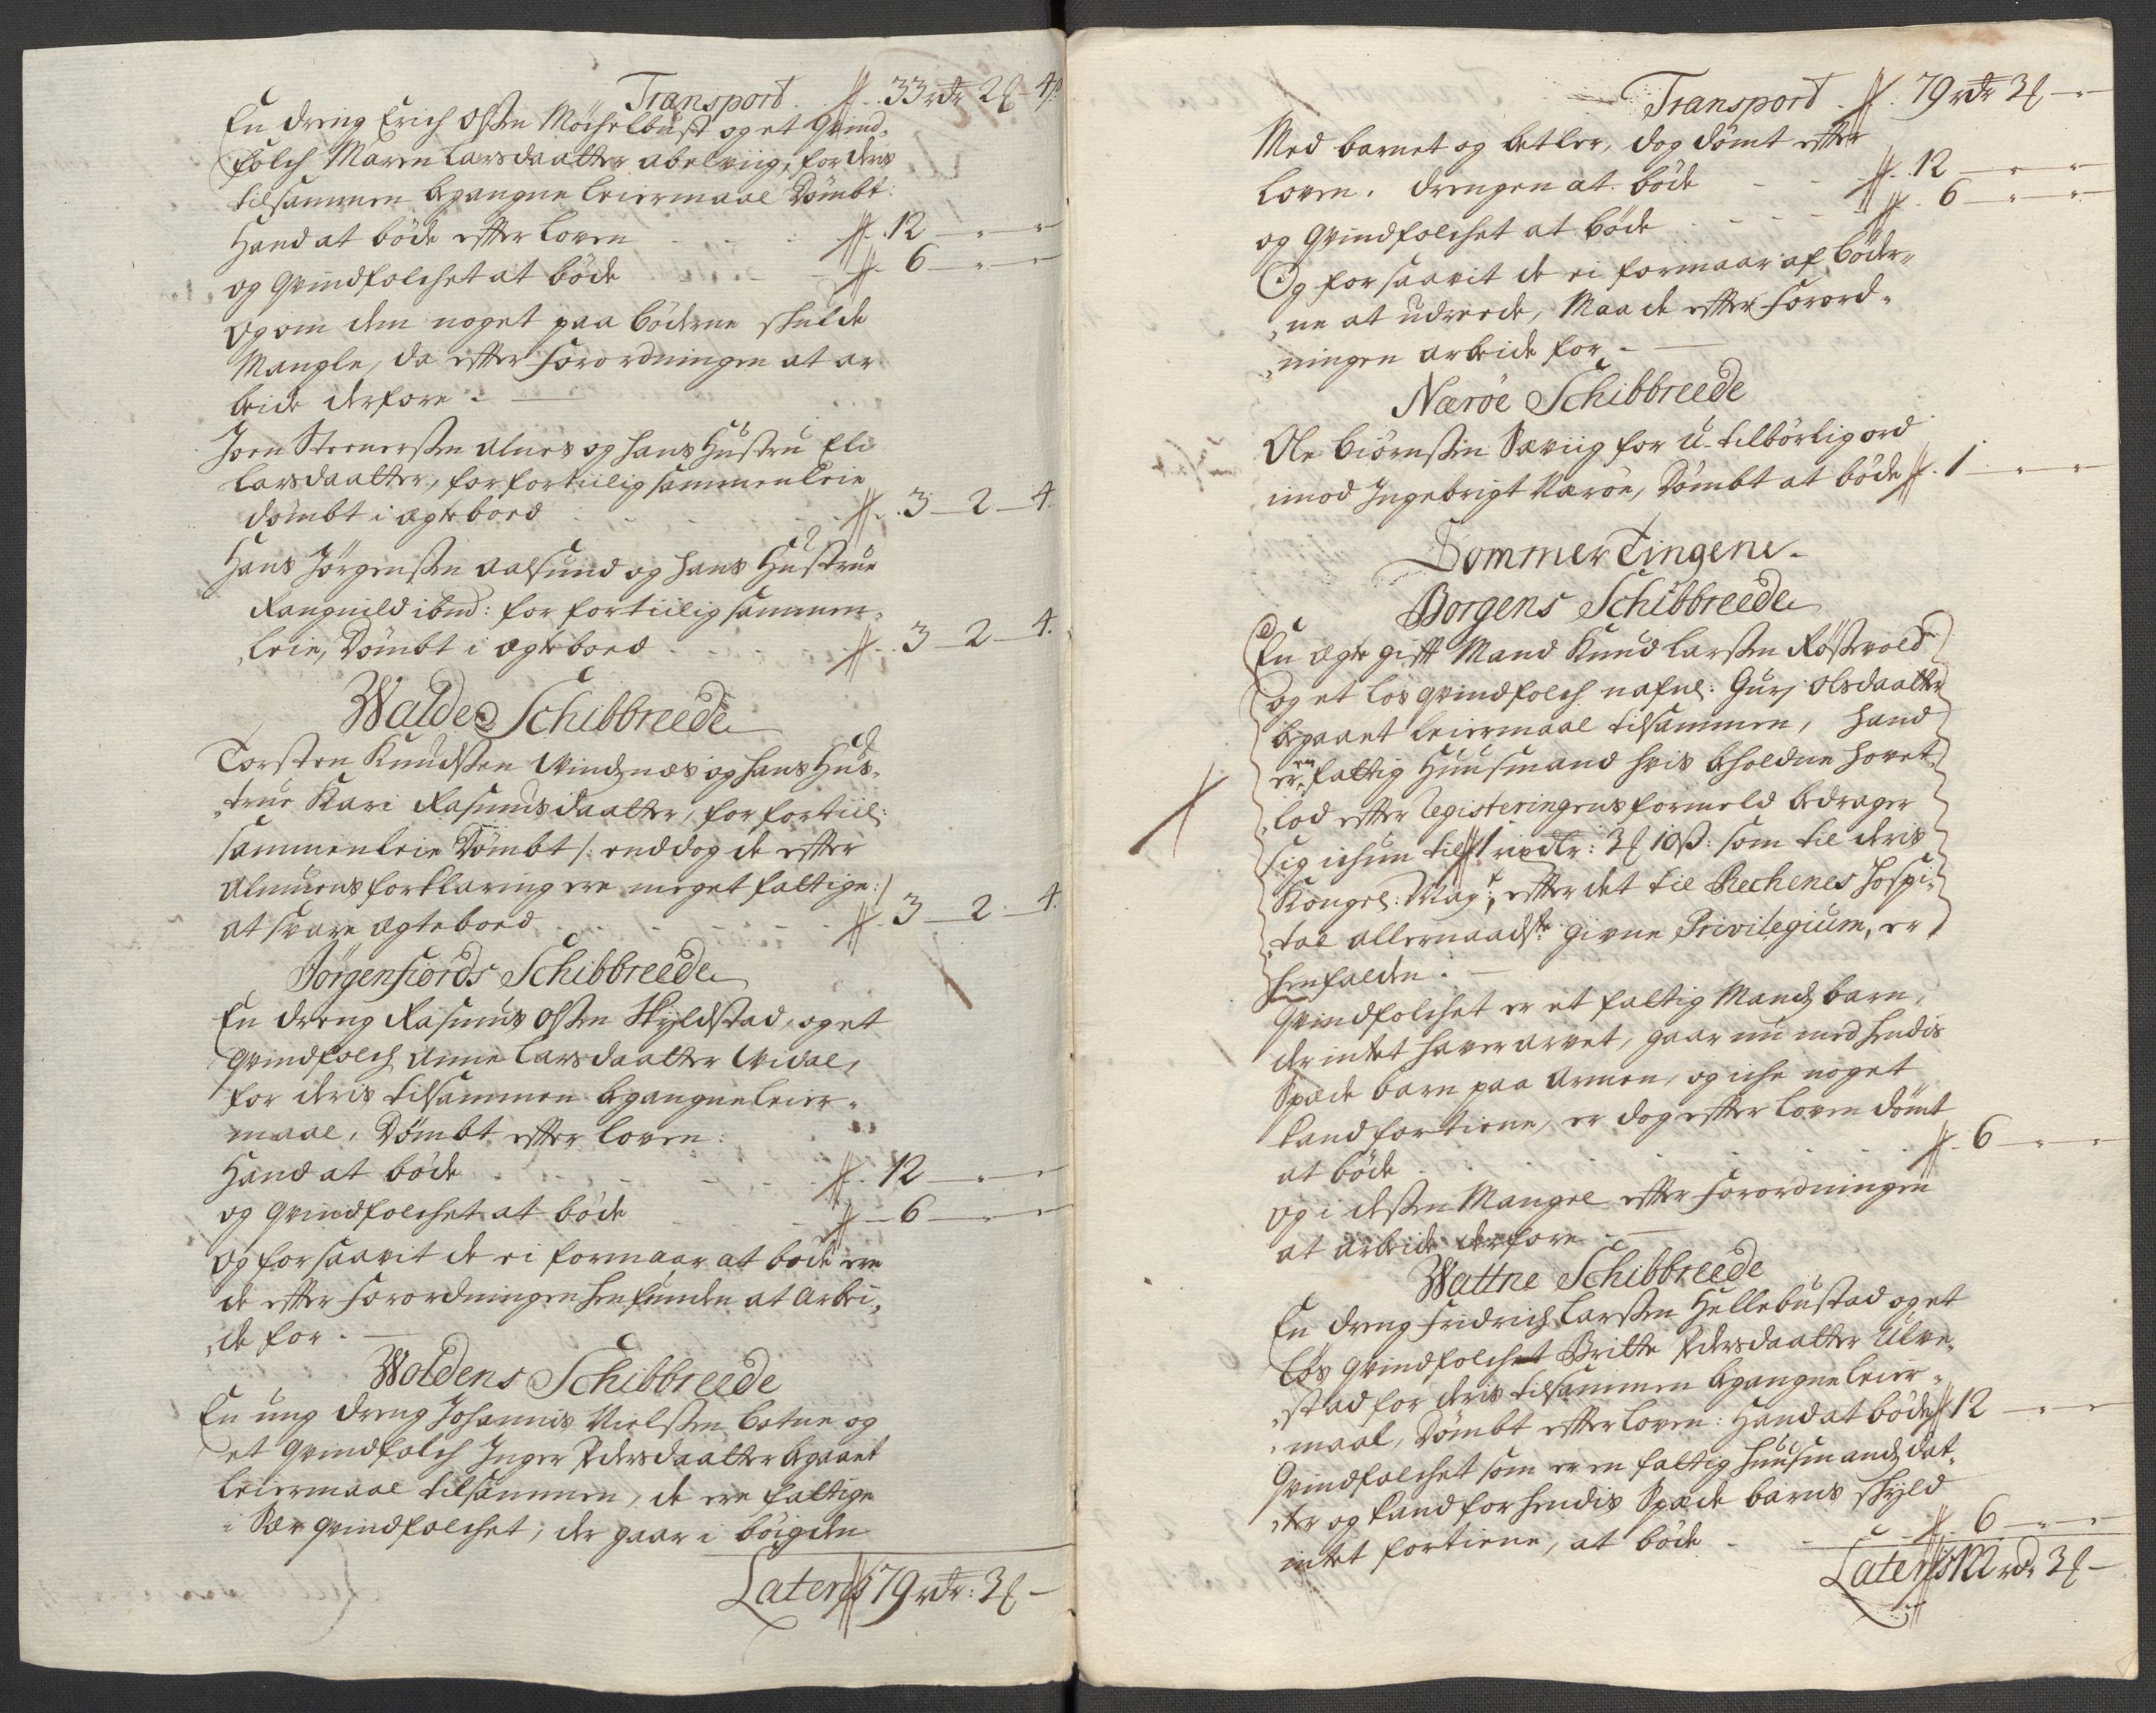 Transport. 33 rdr 2 ₰ 4 ß
En dreng Erich Olsen Möchelbust og et Qvind-
folch Maren Larsdaatter Abelviig, for deris
tilsammen begangne leiermaal Dömbt:
Hand at böde efter loven - - - 12 - " - "
og Qvindfolchet at böde - - 6 - " - "
Og om dem noget paa böderne skulde
Mangle, da efter Forordningen at ar
beide derfore.
Joen Steenersen Alnes og hans Hustru Eli
Larsdaatter, for fortiilig sammenleie
dömbt i ægtebood - - - 3 - 2 - 4.
Hans Jörgensen Aalsund og hans Hustrue
Rangnild ibm: for fortiilig sammen-
leie, Dömbt i ægtebood - - - 3 - 2 - 4.
Walde Schibbreede
Torsten Knudsen Vindnæs og hans Hus-
true Kari Rasmusdaatter, for fortiil:
sammenleie Dömbt /: enddog de efter
Almuens forklaring ere meget fattige:/
at svare ægtebood - - - 3 - 2 - 4.
Jörgenfiords Schibbreede
En dreng Rasmus Olsen Skyldstad, og et
qvindfolch Anne Larsdaatter Vidal,
for deris tilsammen begangne leier-
maal, Dömbt efter loven:
Hand at böde - - - 12 - " - "
og qvindfolchet at böde - - 6 - " - "
Og forsaavit de ei formaar at böde ere
de efter Forordningen henfunden at Arbei-
de for.
Woldens Schibbreede
En ung dreng Johannis Nielsen botne og
et Qvindfolch Inger Pedersdaatter begaaet
leiermaal tilsammen, de ere fattige
i Sær qvindfolchet, der gaar i böigden
Lateris 79 rdr: 3 ₰ -
Transport. 79 rdr 3 ₰ - "
Med barnet og betler, dog dömt efter
loven. drengen at böde - - 12 - " - "
og Qvindfolchet at böde - - - 6 - " - "
Og forsaavit de ei formaar af böder-
ne at udreede, Maa de efter Forord-
ningen arbeide for.
Næröe Schibbreede
Ole Biörnsen Saviig for u-tilbörlig ord
imod Ingebrigt Naröe, Dömbt at böde 1 - " - "
Sommer Tingene.
Borgens Schibbreede
En ægte gift Mand Knud Larsen Rösevold
og et lös qvindfolch nafnl: Guri Olsdaatter
begaaet leiermaal tilsammen, hand
er en fattig Huusmand hvis beholdne hovet-
lod efter Registeringens formeld bedrager
sig ichun til 1 rixdlr: 3 ₰ 10 ß: som til deris
Kongel: Mayt: efter det til Rechenes Hospi-
tal allernaadste givne Privilegium, er
henfalden.
Qvindfolchet er et fattig Mands barn,
der intet haver arvet, gaar nu med hendis
Spæde barn paa Armen, og iche noget
kand fortiene, er dog efter loven dömt
at böde - - - 6 - " - "
og i dessen Mangel efter Forordningen
at arbeide derfore
Wattne Schibbreede
En dreng Fridrich Larsen Hellebustad og et
lös qvindfolchet Britte Pedersdaatter Ulve-
stad for deris tilsammen begangne leier-
maal, Dömbt efter loven: Hand at böde 12 - " - "
Qvindfolchet som er en fattig Huusmands dat-
ter og kand for hendis Spæde barns skyld
intet fortiene, at böde - - 6 - " - "
Lateris 122 rdr 3 ₰ -